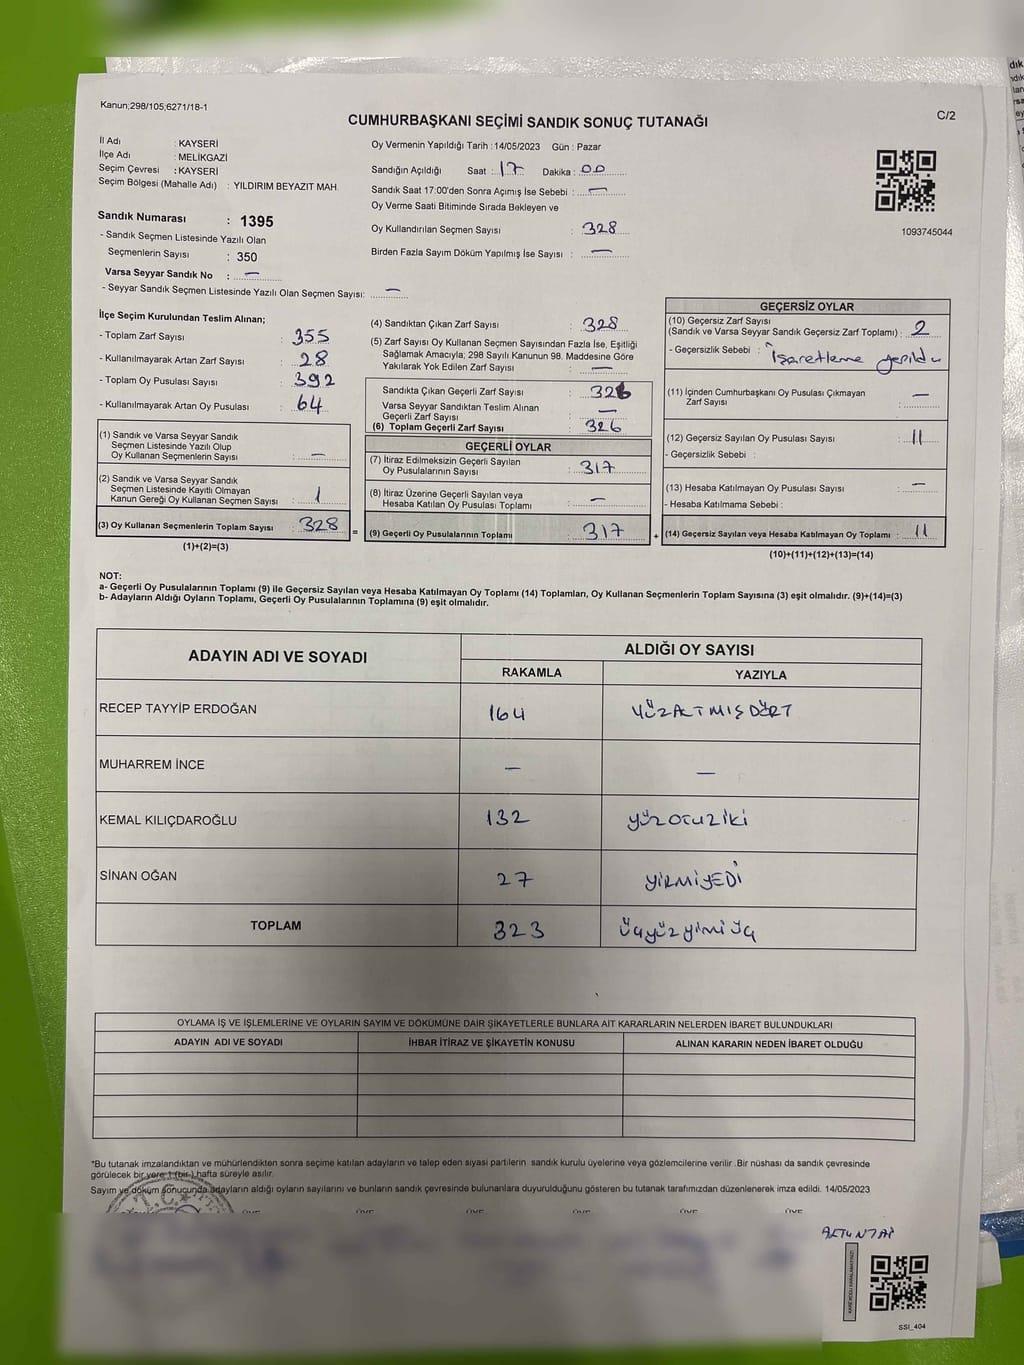 Kanun;298/105;6271/18-1
CUMHURBAŞKANI SEÇİMİ SANDIK SONUÇ TUTANAĞI
C/2
İl Adı : KAYSERİ
İlçe Adı : MELİKGAZİ
Seçim Çevresi : KAYSERİ
Seçim Bölgesi (Mahalle Adı) : YILDIRIM BEYAZIT MAH.
Sandık Numarası : 1395
- Sandık Seçmen Listesinde Yazılı Olan
Seçmenlerin Sayısı : 350
Varsa Seyyar Sandık No : —
- Seyyar Sandık Seçmen Listesinde Yazılı Olan Seçmen Sayısı: —
Oy Vermenin Yapıldığı Tarih : 14/05/2023 Gün : Pazar
Sandığın Açıldığı Saat : 17 Dakika : 00
Sandık Saat 17:00'den Sonra Açımış İse Sebebi : —
Oy Verme Saati Bitiminde Sırada Bekleyen ve
Oy Kullandırılan Seçmen Sayısı : 328
Birden Fazla Sayım Döküm Yapılmış İse Sayısı : —
1093745044
İlçe Seçim Kurulundan Teslim Alınan;
- Toplam Zarf Sayısı : 355
- Kullanılmayarak Artan Zarf Sayısı : 28
- Toplam Oy Pusulası Sayısı : 392
- Kullanılmayarak Artan Oy Pusulası : 64
(1) Sandık ve Varsa Seyyar Sandık
Seçmen Listesinde Yazılı Olup
Oy Kullanan Seçmenlerin Sayısı : —
(2) Sandık ve Varsa Seyyar Sandık
Seçmen Listesinde Kayıtlı Olmayan
Kanun Gereği Oy Kullanan Seçmen Sayısı : 1
(3) Oy Kullanan Seçmenlerin Toplam Sayısı : 328
(1)+(2)=(3)
=
(4) Sandıktan Çıkan Zarf Sayısı : 328
(5) Zarf Sayısı Oy Kullanan Seçmen Sayısından Fazla İse, Eşitliği
Sağlamak Amacıyla; 298 Sayılı Kanunun 98. Maddesine Göre
Yakılarak Yok Edilen Zarf Sayısı : —
Sandıkta Çıkan Geçerli Zarf Sayısı : 326
Varsa Seyyar Sandıktan Teslim Alınan
Geçerli Zarf Sayısı : —
(6) Toplam Geçerli Zarf Sayısı : 326
GEÇERLİ OYLAR
(7) İtiraz Edilmeksizin Geçerli Sayılan
Oy Pusulalarının Sayısı : 317
(8) İtiraz Üzerine Geçerli Sayılan veya
Hesaba Katılan Oy Pusulası Toplamı : —
(9) Geçerli Oy Pusulalarının Toplamı : 317
+
GEÇERSİZ OYLAR
(10) Geçersiz Zarf Sayısı
(Sandık ve Varsa Seyyar Sandık Geçersiz Zarf Toplamı) : 2
- Geçersizlik Sebebi : İşaretleme yapıldı
(11) İçinden Cumhurbaşkanı Oy Pusulası Çıkmayan
Zarf Sayısı : —
(12) Geçersiz Sayılan Oy Pusulası Sayısı : 11
- Geçersizlik Sebebi :
(13) Hesaba Katılmayan Oy Pusulası Sayısı : —
- Hesaba Katılmama Sebebi :
(14) Geçersiz Sayılan veya Hesaba Katılmayan Oy Toplamı : 11
(10)+(11)+(12)+(13)=(14)
NOT:
a- Geçerli Oy Pusulalarının Toplamı (9) ile Geçersiz Sayılan veya Hesaba Katılmayan Oy Toplamı (14) Toplamları, Oy Kullanan Seçmenlerin Toplam Sayısına (3) eşit olmalıdır. (9)+(14)=(3)
b- Adayların Aldığı Oyların Toplamı, Geçerli Oy Pusulalarının Toplamına (9) eşit olmalıdır.
ADAYIN ADI VE SOYADI
ALDIĞI OY SAYISI
RAKAMLA YAZIYLA
RECEP TAYYİP ERDOĞAN 164 YÜZALTMIŞDÖRT
MUHARREM İNCE — —
KEMAL KILIÇDAROĞLU 132 yüzotuziki
SİNAN OĞAN 27 YİRMİYEDİ
TOPLAM 323 üçyüzyimiüç
OYLAMA İŞ VE İŞLEMLERİNE VE OYLARIN SAYIM VE DÖKÜMÜNE DAİR ŞİKAYETLERLE BUNLARA AİT KARARLARIN NELERDEN İBARET BULUNDUKLARI
ADAYIN ADI VE SOYADI İHBAR İTİRAZ VE ŞİKAYETİN KONUSU ALINAN KARARIN NEDEN İBARET OLDUĞU
*Bu tutanak imzalandıktan ve mühürlendikten sonra seçime katılan adayların ve talep eden siyasi partilerin sandık kurulu üyelerine veya gözlemcilerine verilir .Bir nüshası da sandık çevresinde
görülecek bir yere 1 (bir ) hafta süreyle asılır.
Sayım ve döküm sonucunda adayların aldığı oyların sayılarını ve bunların sandık çevresinde bulunanlara duyurulduğunu gösteren bu tutanak tarafımızdan düzenlenerek imza edildi. 14/05/2023
ÜYE ÜYE ÜYE ÜYE ÜYE ÜYE
ALTUNTAŞ
SSI_404